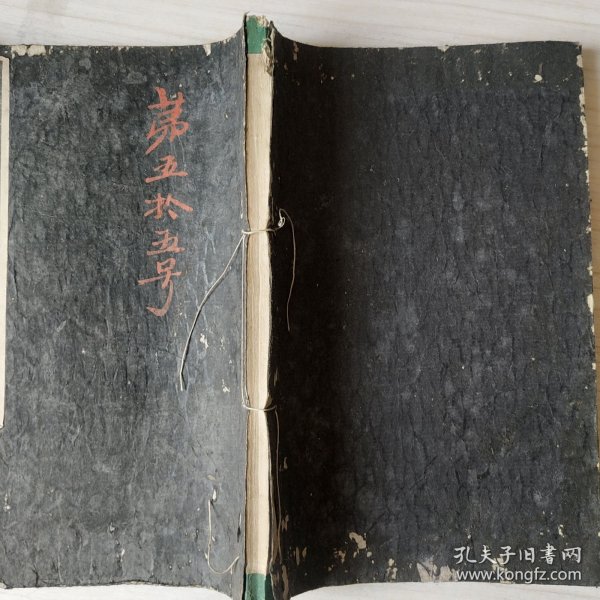 第五於五号
孔夫子旧書网
www.kongfz.com